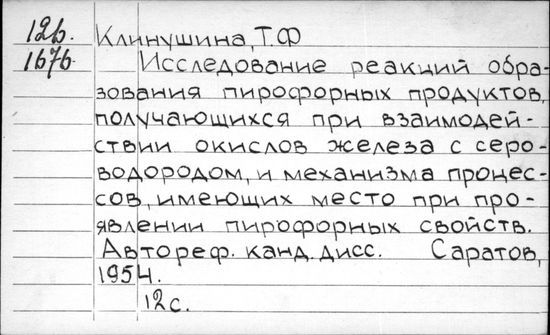 12б. Клинушина, Т.Ф
1676 Исследование реакций обра-
зования пирофорных продуктов,
получающихся при взаимодей-
ствии окислов железа с серо-
водородом, и механизма процес-
сов, имеющих место при про-
явлении пирофорных свойств.
Автореф. канд. дисс. Саратов,
1954.
12с.